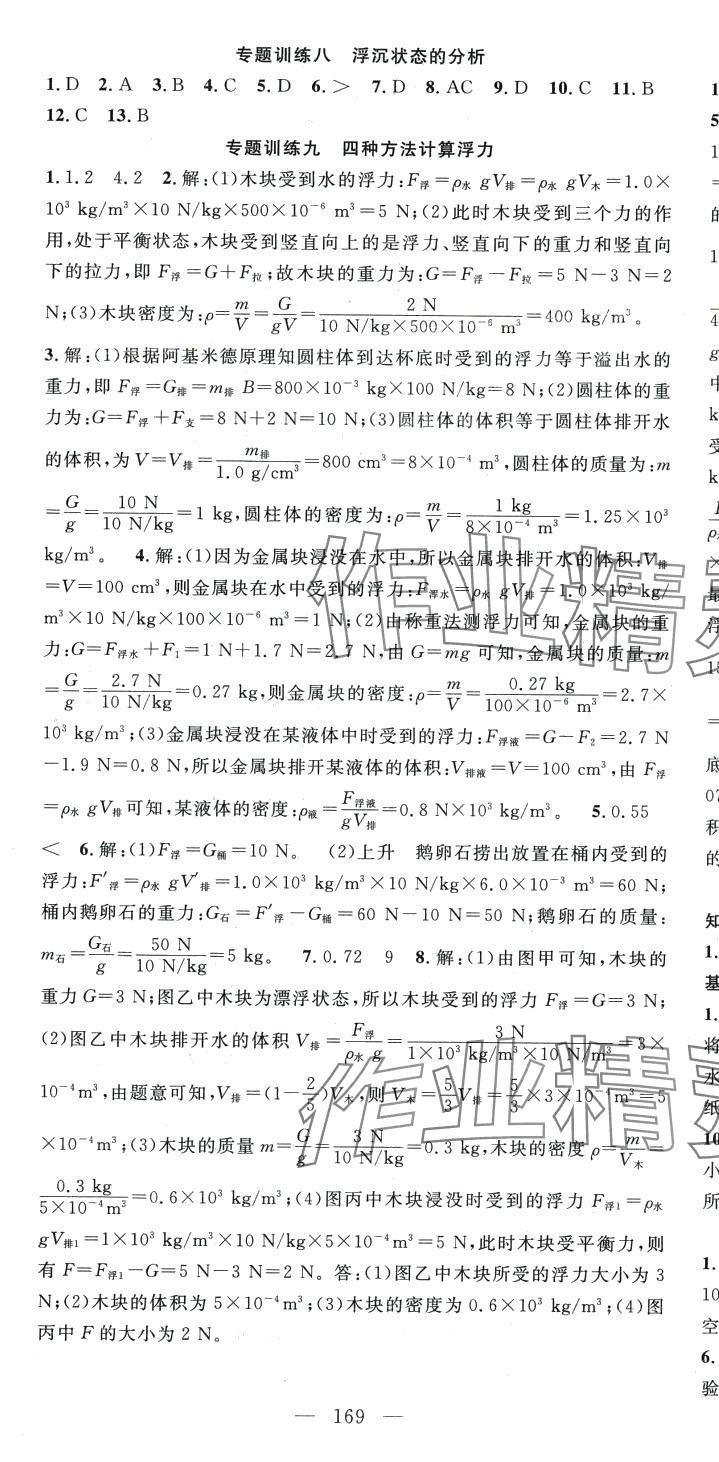 专题训练八 浮沉状态的分析
1.D 2.A 3.B 4.C 5.D 6.> 7.D 8.AC 9.D 10.C 11.B
12.C 13.B
专题训练九 四种方法计算浮力
1.1.2 4.2 2.解:(1)木块受到水的浮力:F浮=ρ水 gV排=ρ水 gV木=1.0×
10³ kg/m³×10 N/kg×500×10⁻⁶ m³=5 N;(2)此时木块受到三个力的作
用,处于平衡状态,木块受到竖直向上的是浮力、竖直向下的重力和竖直向
下的拉力,即 F浮=G+F拉;故木块的重力为:G=F浮-F拉=5 N-3 N=2
N;(3)木块密度为:ρ=m/V=G/gV=2 N/(10 N/kg×500×10⁻⁶ m³)=400 kg/m³。
3.解:(1)根据阿基米德原理知圆柱体到达杯底时受到的浮力等于溢出水的
重力,即 F浮=G排=m排 B=800×10⁻³ kg×100 N/kg=8 N;(2)圆柱体的重
力为:G=F浮+F支=8 N+2 N=10 N;(3)圆柱体的体积等于圆柱体排开水
的体积,为 V=V排=m排/(1.0 g/cm³)=800 cm³=8×10⁻⁴ m³,圆柱体的质量为:m
=G/g=10 N/(10 N/kg)=1 kg,圆柱体的密度为:ρ=m/V=1 kg/(8×10⁻⁴ m³)=1.25×10³
kg/m³。 4.解:(1)因为金属块浸没在水中,所以金属块排开水的体积:V排
=V=100 cm³,则金属块在水中受到的浮力:F浮水=ρ水 gV排=1.0×10³ kg/
m³×10 N/kg×100×10⁻⁶ m³=1 N;(2)由称重法测浮力可知,金属块的重
力:G=F浮水+F₁=1 N+1.7 N=2.7 N,由 G=mg 可知,金属块的质量:m
=G/g=2.7 N/(10 N/kg)=0.27 kg,则金属块的密度:ρ=m/V=0.27 kg/(100×10⁻⁶ m³)=2.7×
10³ kg/m³;(3)金属块浸没在某液体中时受到的浮力:F浮液=G-F₂=2.7 N
-1.9 N=0.8 N,所以金属块排开某液体的体积:V排液=V=100 cm³,由 F浮
=ρ水 gV排可知,某液体的密度:ρ液=F浮液/gV排=0.8 N×10³ kg/m³。 5.0.55
< 6.解:(1)F浮=G桶=10 N。 (2)上升 鹅卵石捞出放置在桶内受到的
浮力:F′浮=ρ水 gV′排=1.0×10³ kg/m³×10 N/kg×6.0×10⁻³ m³=60 N;
桶内鹅卵石的重力:G石=F′浮-G桶=60 N-10 N=50 N;鹅卵石的质量:
m石=G石/g=50 N/(10 N/kg)=5 kg。 7.0.72 9 8.解:(1)由图甲可知,木块的
重力 G=3 N;图乙中木块为漂浮状态,所以木块受到的浮力 F浮=G=3 N;
(2)图乙中木块排开水的体积 V排=F浮/(ρ水 g)=3 N/(1×10³ kg/m³×10 N/m³)=3×
10⁻⁴m³,由题意可知,V排=(1-2/5)V木,则 V木=5/3V排=5/3×3×10⁻⁴m³=5
×10⁻⁴m³;(3)木块的质量 m=G/g=3 N/(10 N/kg)=0.3 kg,木块的密度 ρ=m/V木=
0.3 kg/(5×10⁻⁴m³)=0.6×10³ kg/m³;(4)图丙中木块浸没时受到的浮力 F浮1=ρ水
gV排1=1×10³ kg/m³×10 N/kg×5×10⁻⁴m³=5 N,此时木块受平衡力,则
有 F=F浮1-G=5 N-3 N=2 N。答:(1)图乙中木块所受的浮力大小为 3
N;(2)木块的体积为 5×10⁻⁴m³;(3)木块的密度为 0.6×10³ kg/m³;(4)图
丙中 F 的大小为 2 N。
— 169 —
作业精灵
作业精灵